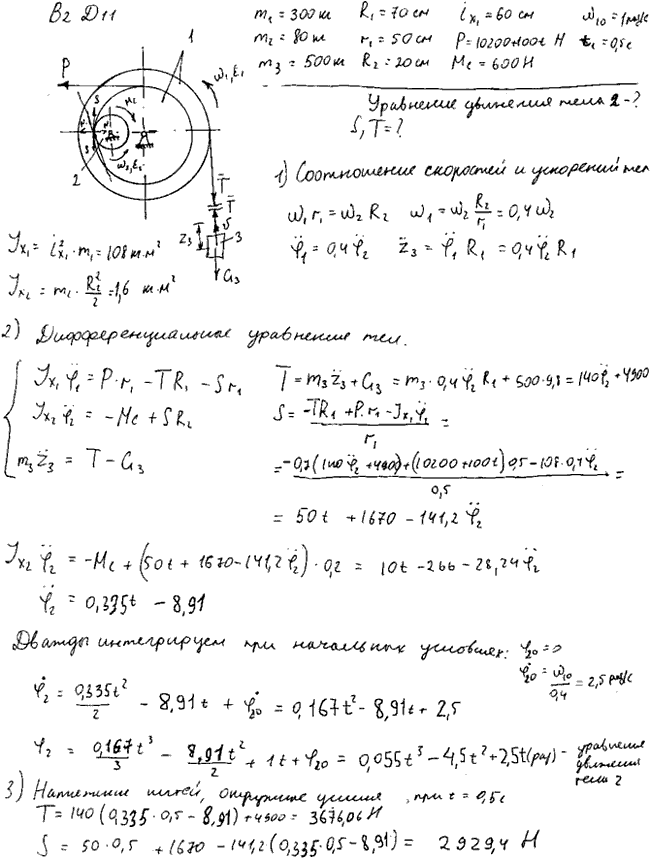 В2 Д11
m₁ = 300 кг R₁ = 70 см i_x₁ = 60 см ω₁₀ = 1 рад/с
m₂ = 80 кг r₁ = 50 см P = 10200+100t Н t₁ = 0,5с
m₃ = 500 кг R₂ = 20 см Mc = 600 Н
Уравнение движения тела 2 - ?
S, T = ?
1
P
ω₁, ε₁
Mc
S
S
ω₂, ε₂
2
T̄
T̄
z₃
3
G₃
1) Соотношение скоростей и ускорений тел
ω₁ r₁ = ω₂ R₂ ω₁ = ω₂ R₂/r₁ = 0,4 ω₂
φ̈₁ = 0,4 φ̈₂ z̈₃ = φ̈₁ R₁ = 0,4 φ̈₂ R₁
J_x₁ = i²_x₁ · m₁ = 108 кг·м²
J_x₂ = m₂ · R₂²/2 = 1,6 кг·м²
2) Дифференциальные уравнение тел.
J_x₁ φ̈₁ = P·r₁ - TR₁ - Sr₁
J_x₂ φ̈₂ = -Mc + SR₂
m₃ z̈₃ = T - G₃
T = m₃ z̈₃ + G₃ = m₃ · 0,4 φ̈₂ R₁ + 500·9,8 = 140 φ̈₂ + 4900
S = (-TR₁ + P·r₁ - J_x₁ φ̈₁)/r₁ =
= (-0,7(140 φ̈₂ + 4900) + (10200 + 100t) 0,5 - 108·0,4 φ̈₂)/0,5 =
= 50t + 1670 - 141,2 φ̈₂
J_x₂ φ̈₂ = -Mc + (50t + 1670 - 141,2 φ̈₂) · 0,2 = 10t - 266 - 28,24 φ̈₂
φ̈₂ = 0,335t - 8,91
Дважды интегрируем при начальных условиях: φ₂₀ = 0
φ̇₂₀ = ω₁₀/0,4 = 2,5 рад/с
φ̇₂ = 0,335t²/2 - 8,91t + φ̇₂₀ = 0,167t² - 8,91t + 2,5
φ₂ = 0,167t³/3 - 8,91t²/2 + 1t + φ₂₀ = 0,055t³ - 4,5t² + 2,5t (рад) - уравнение
движения
тела 2
3) Натяжение нитей, окружные усилия, при t = 0,5с
T = 140 (0,335·0,5 - 8,91) + 4900 = 3676,06 Н
S = 50·0,5 + 1670 - 141,2 (0,335·0,5 - 8,91) = 2929,4 Н